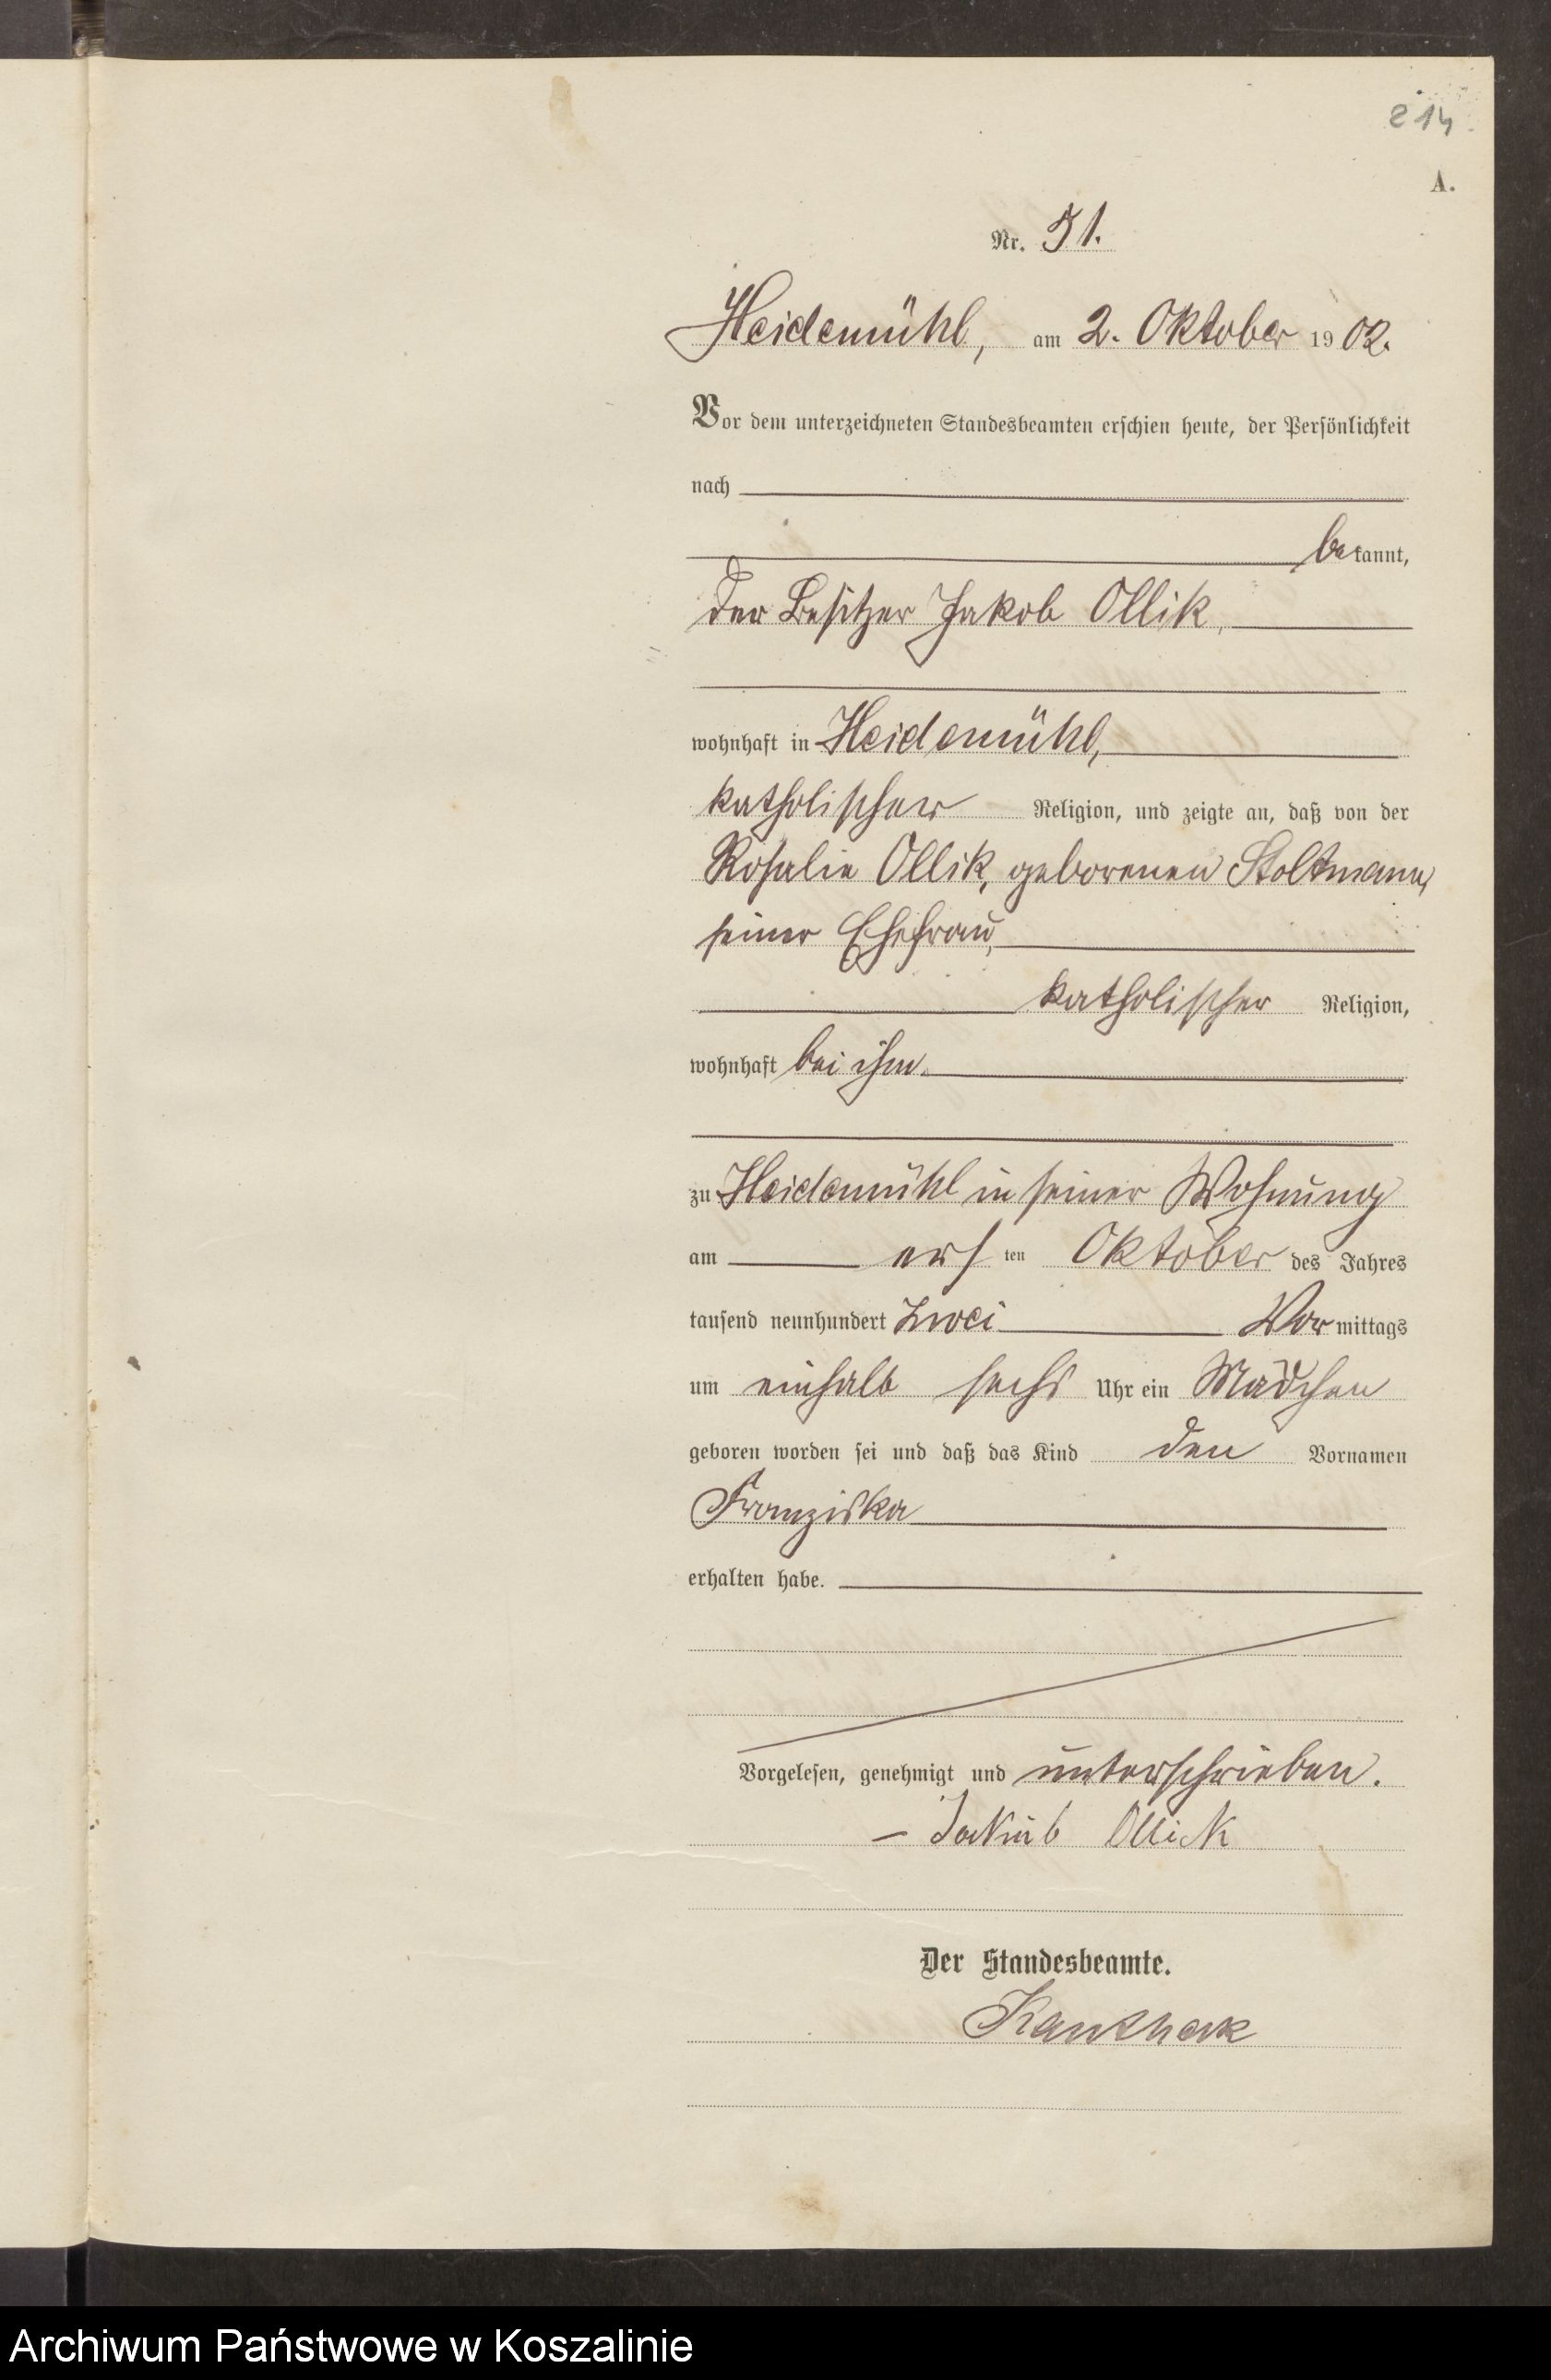 214
A.
Nr. 51.
Heidemühl, am 2. Oktober 1902.
Vor dem unterzeichneten Standesbeamten erschien heute, der Persönlichkeit
nach
bekannt,
der Besitzer Jakob Ollik,
wohnhaft in Heidemühl,
katholischer Religion, und zeigte an, daß von der
Rosalie Ollik, geborenen Stoltmann,
seiner Ehefrau,
katholischer Religion,
wohnhaft bei ihm.
zu Heidemühl in seiner Wohnung
am ersten Oktober des Jahres
tausend neunhundert zwei Vormittags
um einhalb sechs Uhr ein Mädchen
geboren worden sei und daß das Kind den Vornamen
Franziska
erhalten habe.
Vorgelesen, genehmigt und unterschrieben.
– Jakub Ollick
Der Standesbeamte.
Archiwum Państwowe w Koszalinie